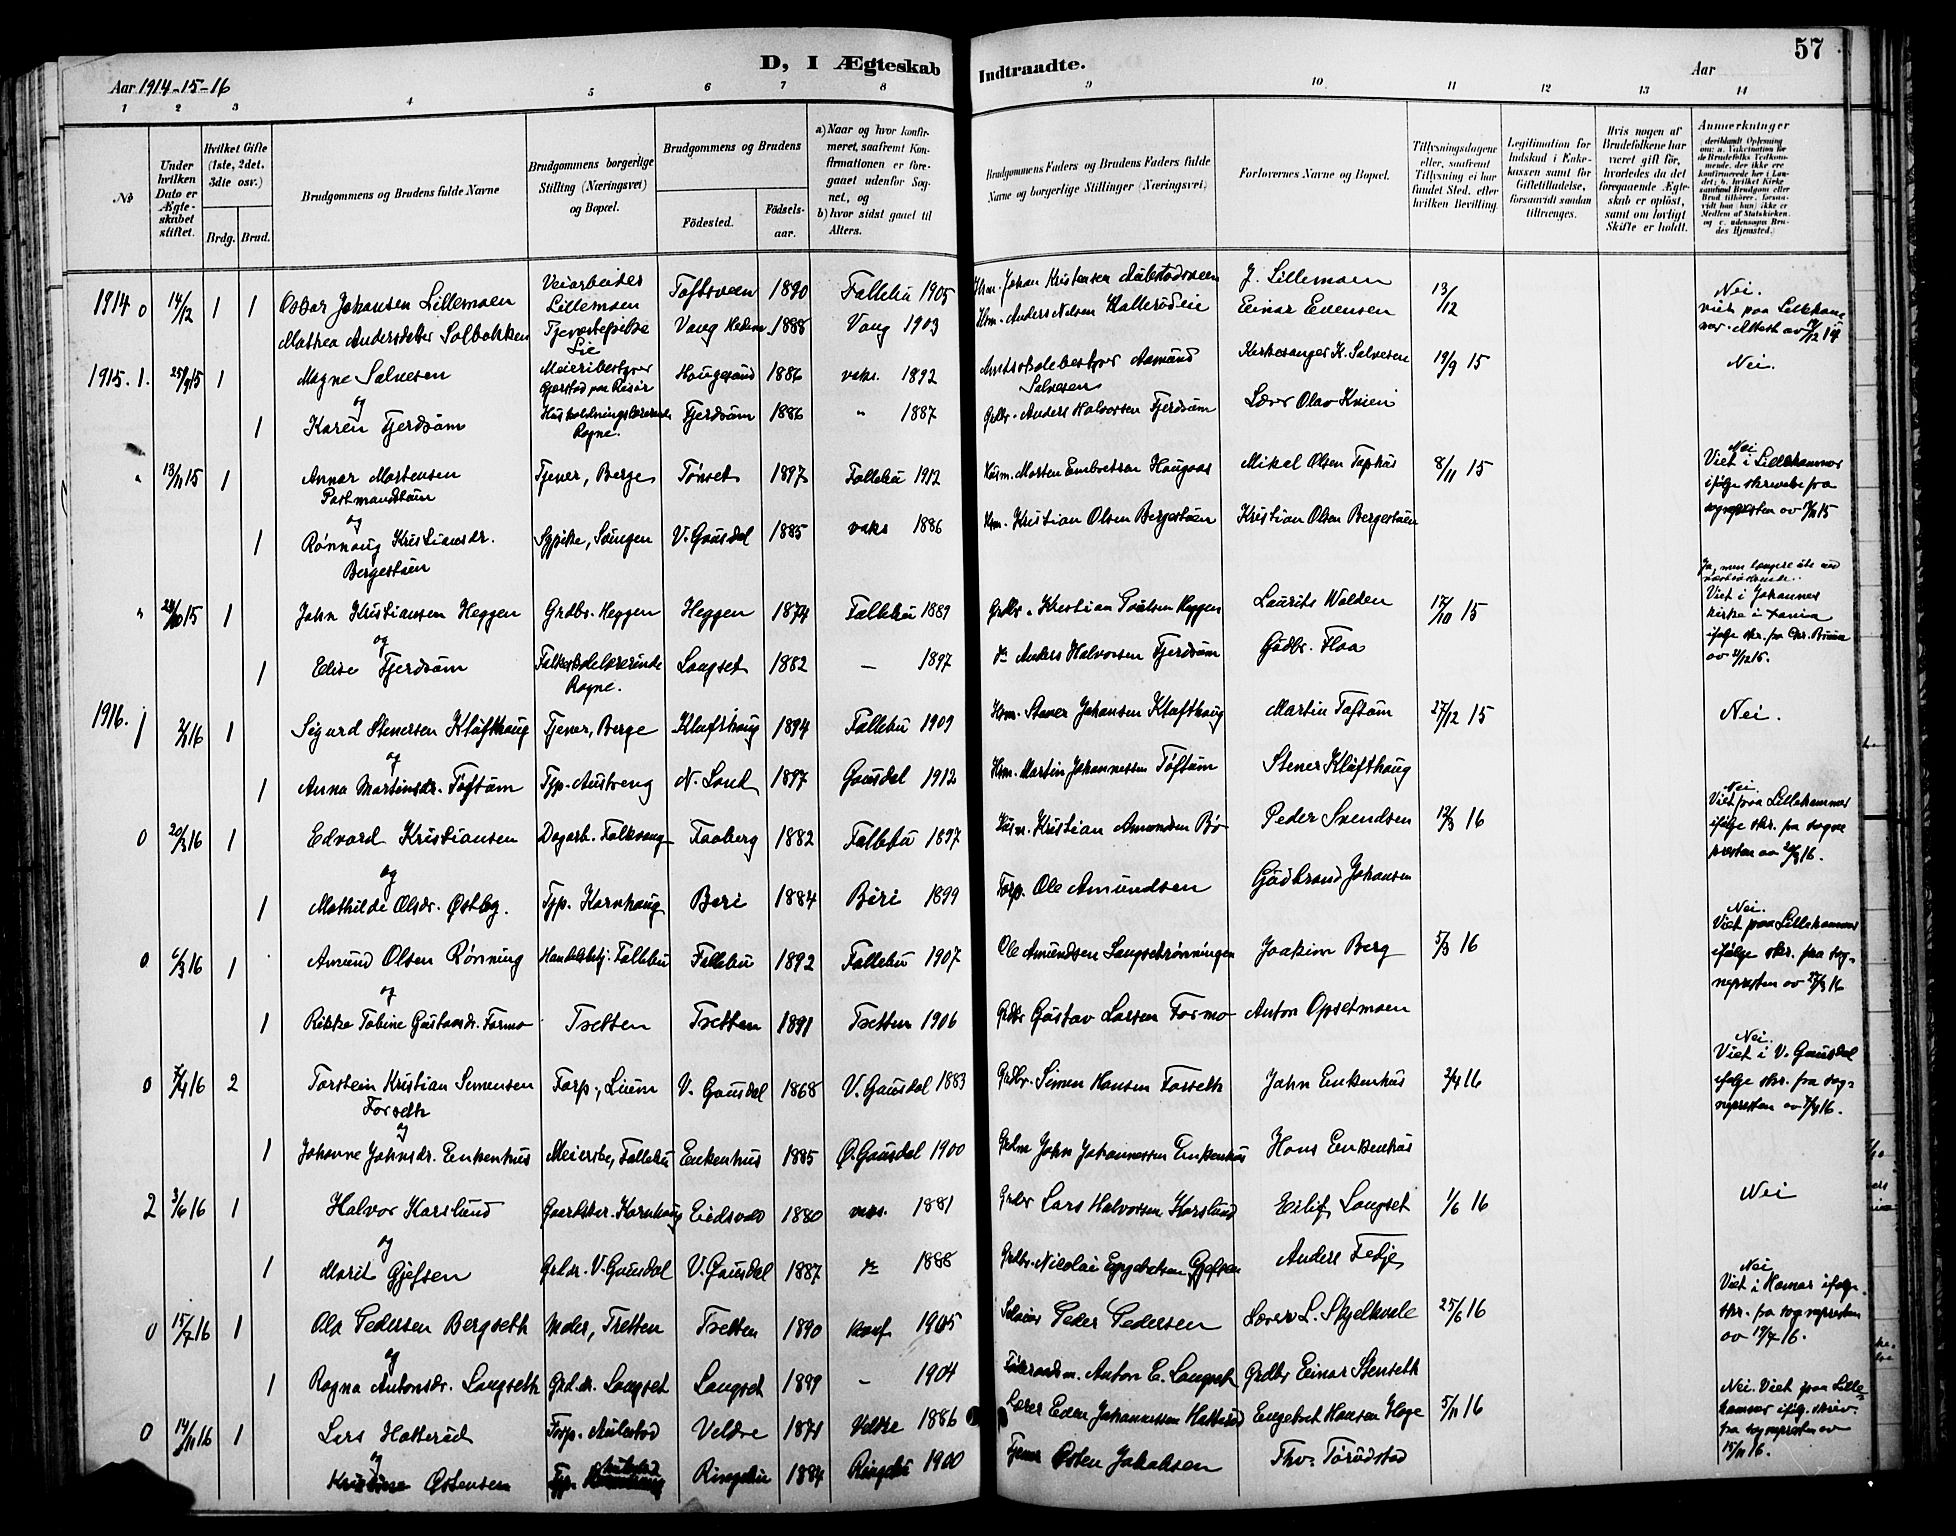 57
D, I Ægteskab Indtraadte.
Aar 1914-15-16
Aar
1 2 3 4 5 6 7 8 9 10 11 12 13 14
No
Under hvilken Dato er Ægteskabet stiftet.
Hvilket Gifte (1ste, 2det. 3die osv.)
Brdg. Brud.
Brudgommens og Brudens fulde Navne
Brudgommens borgerlige Stilling (Næringsvei) og Bopæl.
Brudgommens og Brudens
Fødested.
Fødselsaar.
a) Naar og hvor konfirmeret, saafremt Konfirmationen er foregaaet udenfor Sognet, og
b) hvor sidst gaaet til Alters.
Brudgommens Faders og Brudens Faders fulde Navne og borgerlige Stillinger (Næringsvei)
Forlovernes Navne og Bopæl.
Tillysningsdagene eller, saafremt Tillysning ei har fundet Sted, efter hvilken Bevilling.
Legitimation for Indskud i Enkekassen samt for Giftetilladelse, forsaavidt saadan tiltrænges.
Hvis nogen af Brudefolkene har været gift før, hvorledes da det foregaaende Ægteskab er opløst, samt om lovligt Skifte er holdt.
Anmærkninger
1914 0 14/12 1 1 Oskar Johansen Lillemoen Veiarbeider Lillemoen Toftsveen 1890 Follebu 1905 Hm. Johan Kristensen Aulestadsveen J. Lillemoen 13/12 Nei.
Mathea Andersdatter Solbakken Tjenestepike Lie Vang Hedm 1888 Vang 1903 Hm. Anders Nelsen Einar Evensen viet paa Lillehammer. Attest av 14/12 14
1915. 1. 25/9 15 1 Magne Salvesen Meieribestyrer Gjerstad paa Risør Haugesund 1886 vaks. 1892 Amtsskolebestyrer Aamund Salvesen Kirkesanger K. Salvesen 19/9 15 Nei.
og
1 Karen Fjerdsum Husholdningslærerinde Rogne. Fjerdsum 1886 " 1887 Grdbr. Anders Halvorsen Fjerdsum Lærer Olav Kvien
" 13/11 15 1 Annar Mortensen Postmandstuen Tjener, Berge Tønset 1897 Follebu 1912 Husm. Morten Embretsen Haugaas Mikel Olsen 8/11 15 Nei Viet i Lillehammer ifølge skrivelse fra sognepresten av
og
1 Rønnaug Kristiansdr. Bergestuen Sypike, Svingen V. Gausdal 1885 vaks 1886 Hm. Kristian Olsen Bergestuen Kristian Olsen Bergestuen
" 15 1 John Kristiansen Heggen Grdbr. Heggen Heggen 1874 Follebu 1889 Grdbr. Kristian Poulsen Heggen Laurits Wolden 17/10 15 Viet i Johannes kirke i
og
1 Elise Fjerdsum Folkeskolelærerinde Rogne. Longset 1882 — 1897 do Anders Halvorsen Fjerdsum Gudbr. Floa
1916. 1 2/1 16 1 Sigurd Stenersen Klufthaug Tjener, Berge Klufthaug 1894 Follebu 1909 Hm. Stener Johansen Klufthaug Martin Toftum 27/12 15 Nei.
og
1 Anna Martinsdr. Toftum Tjp. Austveng N. Land 1897 Gausdal 1912 Hm. Martin Johannessen Toftum Stener Klufthaug
0 20/3 16 1 Edvard Kristiansen Dagarb. Folkvang Faaberg 1882 Follebu 1897 Husm. Kristian Amundsen Bø Peder Svendsen 12/3 16 Nei. Viet paa Lillehammer ifølge skr. fra sognepresten av
og
1 Mathilde Olsdr. Østby. Tjp. Kornhaug Biri 1884 Biri 1899 Forp. Ole Amundsen Gudbrand Johansen
0 /3 16 1 Amund Olsen Rønning Handelsbtj. Follebu Follebu 1892 Follebu 1907 Ole Amundsen Longsetrønningen Joakim Berg 5/3 16 Nei. Viet paa Lillehammer ifølge skr. fra sognepresten av 27/3 16
og
1 Rikke Tobine Gustavsdr. Formo Tretten Tretten 1891 Tretten 1906 Grdbr Gustav Larsen Formo Anton Opsetmoen
0 7/4 16 2 Torstein Kristian Simensen Forseth Forp., Linen V. Gausdal 1868 V. Gausdal 1883 Grdbr. Simen Hansen Forseth John Enkenhus 2/4 16 Nei. Viet i V. Gausdal ifølge skr. fra sognepresten av 7/4 16.
og
1 Johanne Johnsdr. Enkenhus Meierske, Follebu Enkenhus 1885 Ø. Gausdal 1900 John Johannessen Enkenhus Hans Enkenhus
2 3/6 16 1 Halvor Karslund Gaardsbr. Kornhaug Eidsvold 1880 1881 Grdbr Lars Halvorsen Karslund Eilif Longset 1/6 16 Nei
og
1 Marit Gjefsen Grd.dr. V. Gausdal V. Gausdal 1887 do 1888 Grdbr. Nicolai Engebretsen Gjefsen Anders Fedje
0 15/7 16 1 Ola Pedersen Bergseth Maler, Tretten Tretten 1890 konf. 1905 Peder Pedersen Lærer L. Skjelkvale 25/6 16 Nei Viet i Hamar ifølge skr. fra sognepresten av 19/7 16.
og
1 Ragna Antonsdr. Longseth Grd.dr. Longset Longset 1889 — 1904 Føderaadsm. Anton E. Longseth Grdbr Einar Stenseth
0 14/11 16 1 Lars Hatterud Forp. Aulestad Veldre 1871 Veldre 1886 Eden Johannessen Hatterud Engebret Hansen Hage 5/11 16 Nei. Viet paa Lillehammer ifølg. skriv. fra sognepresten av 15/11 16.
og
Kristine Østensen Tjp. Aulestad Ringebu 1884 Ringebu 1900 Tjener Østen Jakobsen Thv. Torudstad